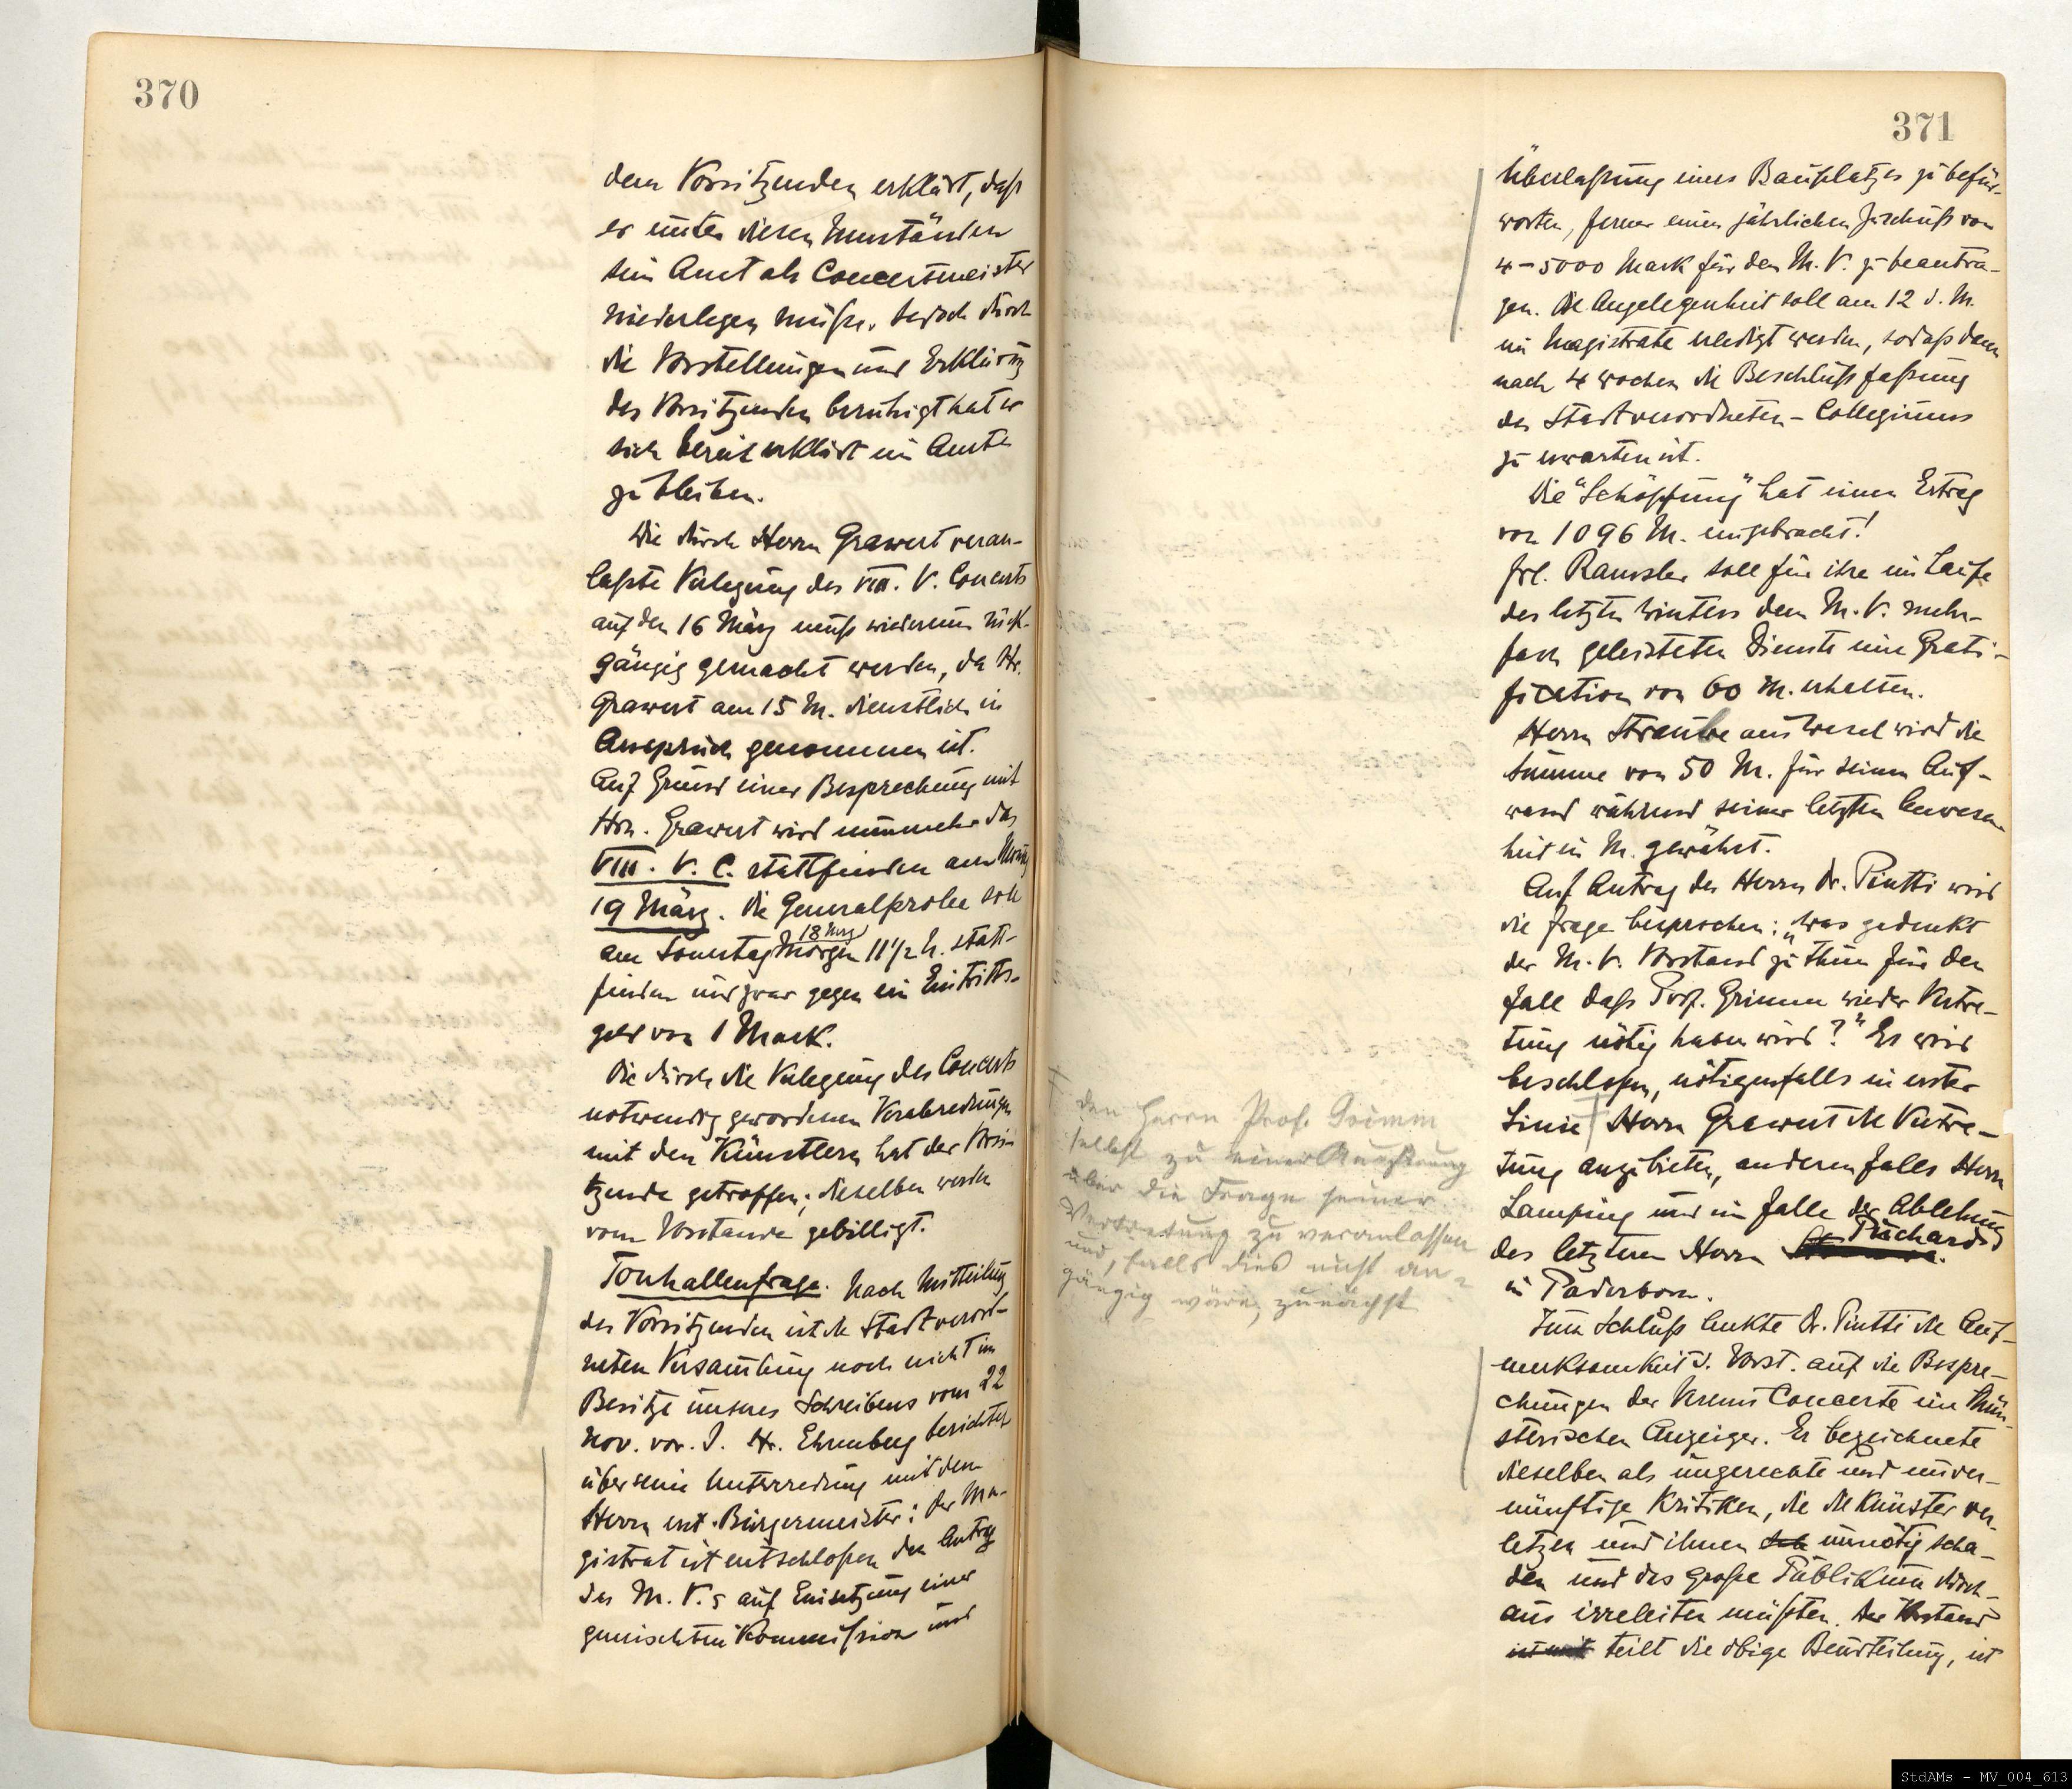 370
dem Vorsitzenden erklärt, daß
er unter diesen Umständen
sein Amt als Concertmeister
niederlegen müße. Jedoch durch
die Vorstellungen und Erklärung
des Vorsitzenden beruhigt hat er
sich bereit erklärt im Amte
zu bleiben.
Die durch Herrn Grawert veran-
laßte Verlegung des VIII. V. Concerts
auf den 16 März muß wiederum rück-
gängig gemacht werden, da Hr.
Grawert am 15 M. dienstlich in
Anspruch genommen ist.
Auf Grund einer Besprechung mit
Hrn. Grawert wird nunmehr das
VIII. V. C. stattfinden am
19 März. Die Generalprobe soll
18 Mrz
am Sonntag Morgen 11 1/2 h. statt-
finden und zwar gegen ein Eintritts-
geld von 1 Mark.
Die durch die Verlegung des Concerts
notwendig gewordenen Verabredungen
mit den Künstlern hat der Vorsi-
tzende getroffen; dieselben werden
vom Vorstande gebilligt.
Tonhallenfrage. Nach Mitteilung
des Vorsitzenden ist die Stadtverord-
neten Versamlung noch nicht im
Besitze unseres Schreibens vom 22
Nov. vor. J. Hr. Ehrenberg berichtet
über seine Unterredung mit dem
Herrn erst. Bürgermeister: der Ma-
gistrat ist entschloßen den Antrag
des M. V.s auf Einsetzung einer
gemischten Kommißion und
371
Überlaßung eines Bauplatzes zu befür-
worten, ferner einen jährlichen Zuschuß von
4-5000 Mark für den M. V. zu beantra-
gen. Die Angelegenheit soll am 12 d. M.
im Magistrate erledigt werden, sodaß dann
nach 4 Wochen die Beschlußfaßung
des Stadtverordneten-Collegiums
zu erwarten ist.
Die "Schöpfung" hat einen Ertrag
von 1096 M. eingebracht!
Frl. soll für ihre im Laufe
des letzten Winters dem M. V. mehr-
fach geleisteten Dienste eine Grati-
fication von 60 M. erhalten.
Herrn Straube aus Wesel wird die
Summe von 50 M. für seinen Auf-
wand während seiner letzten Anwesen-
heit in M. gewährt.
Auf Antrag des Herrn Dr. Piutti wird
die Frage besprochen: „Was gedenkt
der M. V. Vorstand zu thun für den
Fall daß Prof. Grimm wieder Vertre-
tung nötig haben wird?" Es wird
beschloßen, nötigenfalls in erster
Linie Herrn Grawert die Vertre-
tung anzubieten, anderenfalls Herrn
Lamping und im Falle der Ablehnung
des letzteren Herrn
in Paderborn.
Zum Schluß lenkte Dr. Piutti die Auf-
merksamkeit d. Vorst. auf die Bespre-
chungen der Vereins Concerte im Mün-
sterischen Anzeiger. Er bezeichnete
dieselben als ungerechte und unver-
nünftige Kritiken, die die Künstler ver-
letzen und ihnen unnötig scha-
den und das große Publikum durch-
aus irreleiten müßten. Der Vorstand
ist mit teilt die obige Beurteilung, ist
den Herrn Prof. Grimm
selbst zu einer Äußerung
über die Frage seiner
Vertretung zu veranlassen
und, falls dies nicht an-
gängig wäre, zunächst
StdAMs - MV_004_613